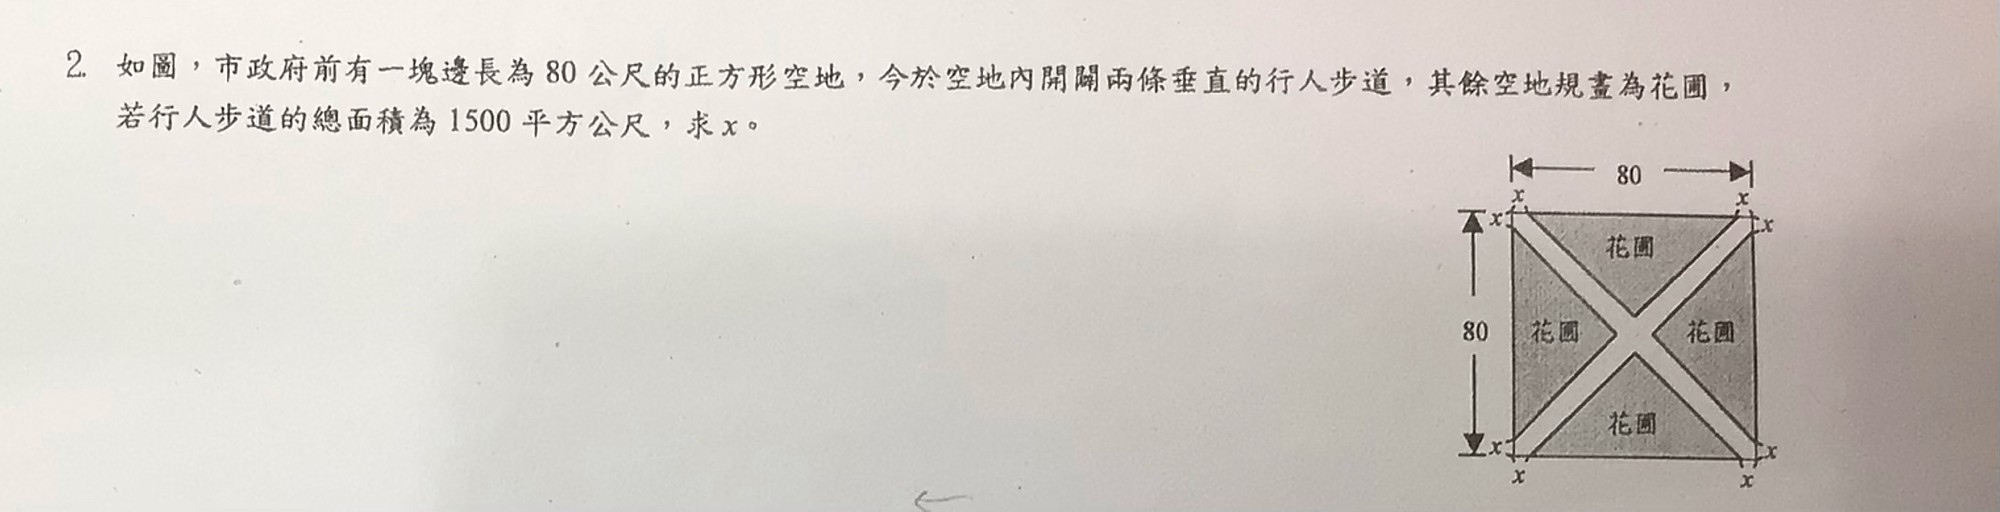 2. 如圖，市政府前有一塊邊長為 80 公尺的正方形空地，今於空地內開闢兩條垂直的行人步道，其餘空地規畫為花圃，
若行人步道的總面積為 1500 平方公尺，求 x。
80
x x
x x
花圃
80 花圃 花圃
花圃
x x
x x